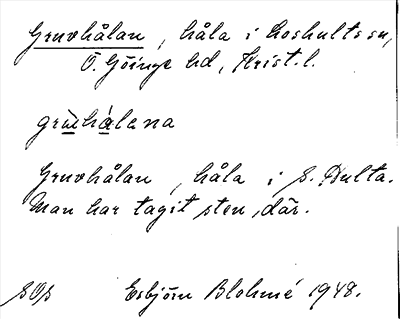 Gruvhålan, håla i Loshults sn,
Ö. Göinge hd, Krist. l.
grùvhålena
Gruvhålan, håla i S. Hulta.
Man har tagit sten, där.
SOs Esbjörn Blohmé 1948.